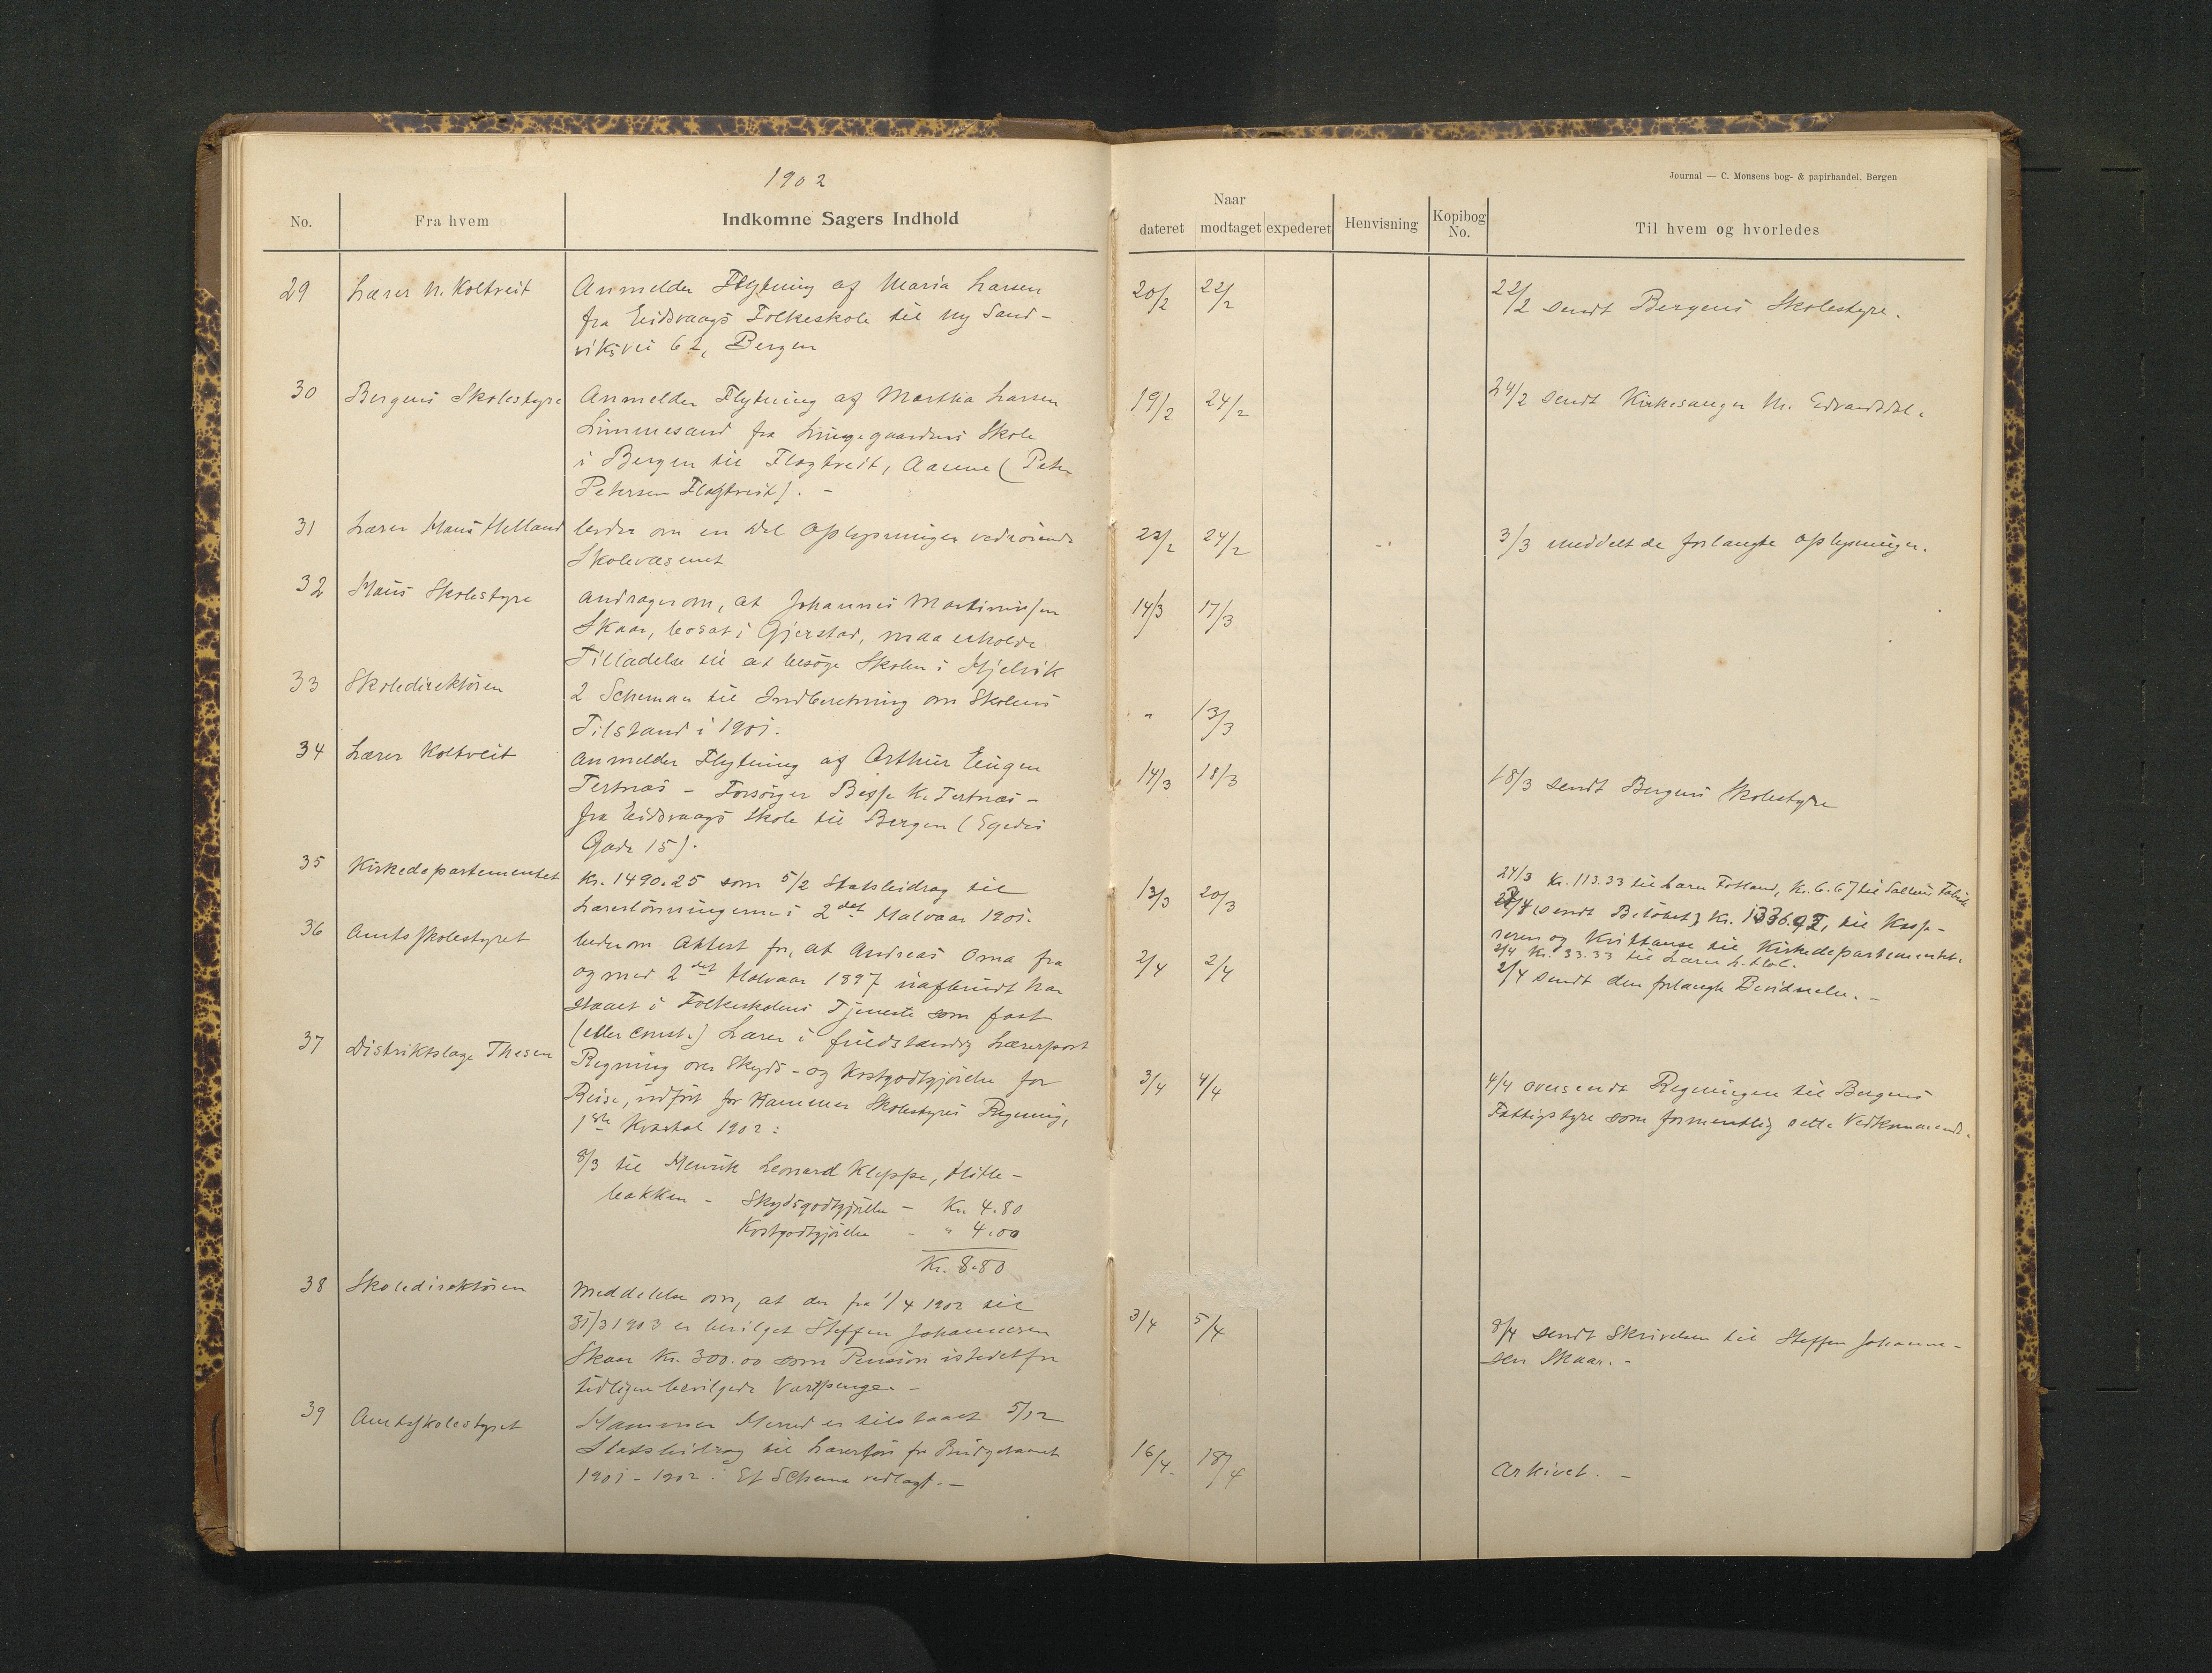 1902
Journal — C. Monsens bog- & papirhandel, Bergen
No. Fra hvem Indkomne Sagers Indhold Naar dateret modtaget expederet Henvisning Kopibog No. Til hvem og hvorledes
29 Lærer N. Koltveit Anmelder Flytning af Maria Larsen 20/2 22/2 22/2 sendt Bergens Skolestyre.
fra Eidsvaags Folkeskole til Ny Sand-
viksvei 62, Bergen
30 Bergens Skolestyre Anmelder Flytning af Martha Larsen 19/2 24/2 24/2 sendt Kirkesanger M. Edvardsdal.
Limmesand fra Lungegaardens Skole
i Bergen til Flagtveit, Aasene (Peder
Petersen Flagtveit). -
31 Lærer Hans Helland beder om en Del Oplysninger vedrørende 22/2 24/2 3/3 meddelt de forlangte Oplysninger.
Skolevæsenet
32 Haus Skolestyre andrager om, at Johannes Martinussen 14/3 17/3
Skaar, bosat i Gjerstad, maa erholde
Tilladelse til at besøge Skolen i Hjelvik
33 Skoledirektøren 2 Schemaer til Indberetning om Skolens " 13/3
Tilstand i 1901.
34 Lærer Koltveit Anmelder Flytning af Arthur Eugen 14/3 18/3 18/3 sendt Bergens Skolestyre
Tertnæs - Forsørger Besse K. Tertnæs -
fra Eidsvaags Skole til Bergen (Egedes
Gade 15).
35 Kirkedepartementet Kr. 1490.25 som 5/2 Statsbidrag til 13/3 20/3 24/3 Kr. 113.33 til Lærer Fotland, Kr. 6.67 til Salhus Fabrik
Lærerlønningerne i 2det Halvaar 1901.
sendt Beløbet, Kr. 1336.92, til Kasse-
reren og Kvittanse til Kirkedepartementet.
2/4 Kr. 33.33 til Lærer
36 Amtsskolestyret beder om Attest for, at Andreas Oma fra 2/4 2/4 2/4 sendt den forlangte Bevidnelse. -
og med 2det Halvaar 1897 uafbrudt har
staaet i Folkeskolens Tjeneste som fast
(eller const.) Lærer i fuldstændig Lærerpost
37 Distriktslæge Thesen Regning over Skyds- og Kostgodtgjørelse for 3/4 4/4 4/4 oversendt Regningen til Bergens
Reise, udført for Hammer Skolestyres Regning, Fattigstyre som formentlig rette Vedkommende.
1ste Kvartal 1902:
8/3 til Henrik Leonard Kleppe, Hitle-
bakken - Skydsgodtgjørelse - Kr. 4.80
Kostgodtgjørelse - " 4.00
Kr. 8.80
38 Skoledirektøren Meddelelse om, at der fra 1/4 1902 til 3/4 5/4 8/4 sendt Skrivelsen til Steffen Johanne-
31/3 1903 er bevilget Steffen Johannesen sen Skaar. -
Skaar Kr. 300.00 som Pension istedetfor
tidligere bevilgede Vartpenge. -
39 Amtsskolestyret Hammer Herred er tilstaaet 5/12 16/4 18/4 Arkivet. -
Statsbidrag til Lærerløn for Budgetaaret
1901-1902. Et Schema vedlagt. -